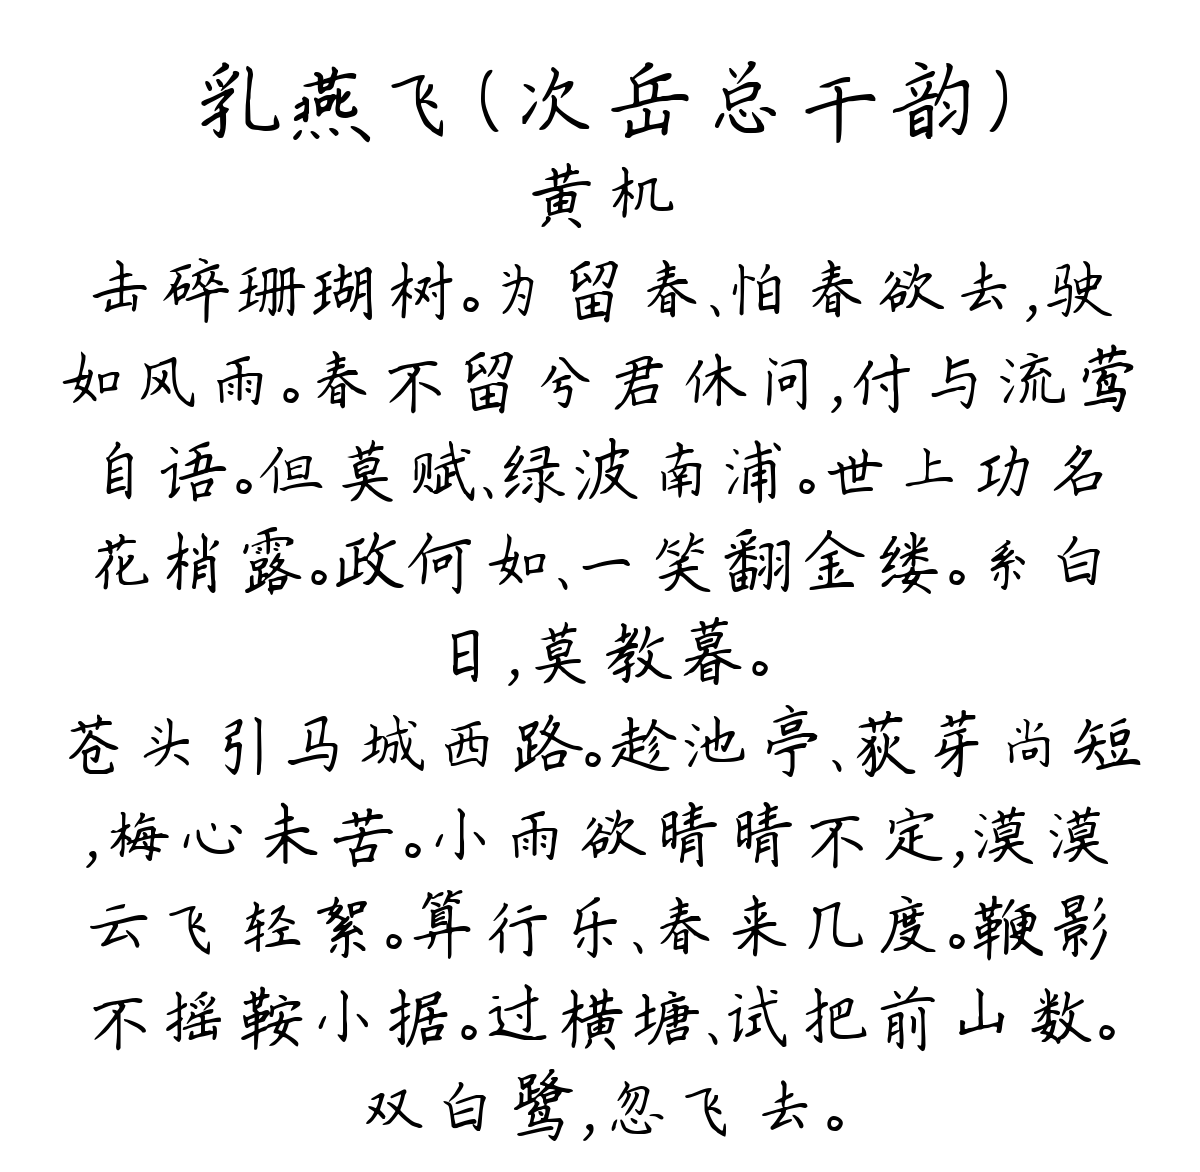 乳燕飞(次岳总干韵)
黄机
击碎珊瑚树。为留春、怕春欲去,驶
如风雨。春不留兮君休问,付与流莺
自语。但莫赋、绿波南浦。世上功名
花梢露。政何如、一笑翻金缕。系白
日,莫教暮。
苍头引马城西路。趁池亭、荻芽尚短
,梅心未苦。小雨欲晴晴不定,漠漠
云飞轻絮。算行乐、春来几度。鞭影
不摇鞍小据。过横塘、试把前山数。
双白鹭,忽飞去。